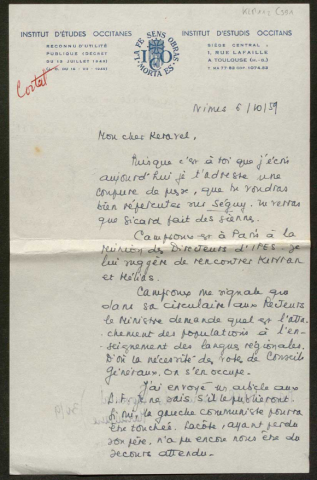 INSTITUT D'ÉTUDES OCCITANES
RECONNU D'UTILITÉ
PUBLIQUE (DÉCRET
DU 16 JUILLET 1949)
LA FE SENS OBRAS
MORTA ES
INSTITUT D'ESTUDIS OCCITANS
SIÈGE CENTRAL :
1, RUE LAFAILLE
A TOULOUSE (H.-G.)
Nimes 6/10/59
Mon cher Keravel,
Puisque c'est à toi que j'écris
aujourd'hui je t'adresse une
coupure de presse, que tu voudras
bien répercuter sur Séguy. Tu verras
que Sicard fait des siennes.
Camproux est à Paris à la
réunion des Directeurs d'IPES. Je
lui suggère de rencontrer
et Hélias.
Camproux me signale que
dans sa circulaire aux Recteurs
le Ministre demande quel est l'atta-
chement des populations à l'en-
seignement des langues régionales.
D'où la nécessité des votes de Conseils
Généraux. On s'en occupe.
J'ai envoyé un article aux
L.F. Je ne sais s'ils le publieront.
Si oui, la gauche communiste pourra
être touchée. Lacôte, ayant perdu
son père, n'a pu encore nous être du
secours attendu.